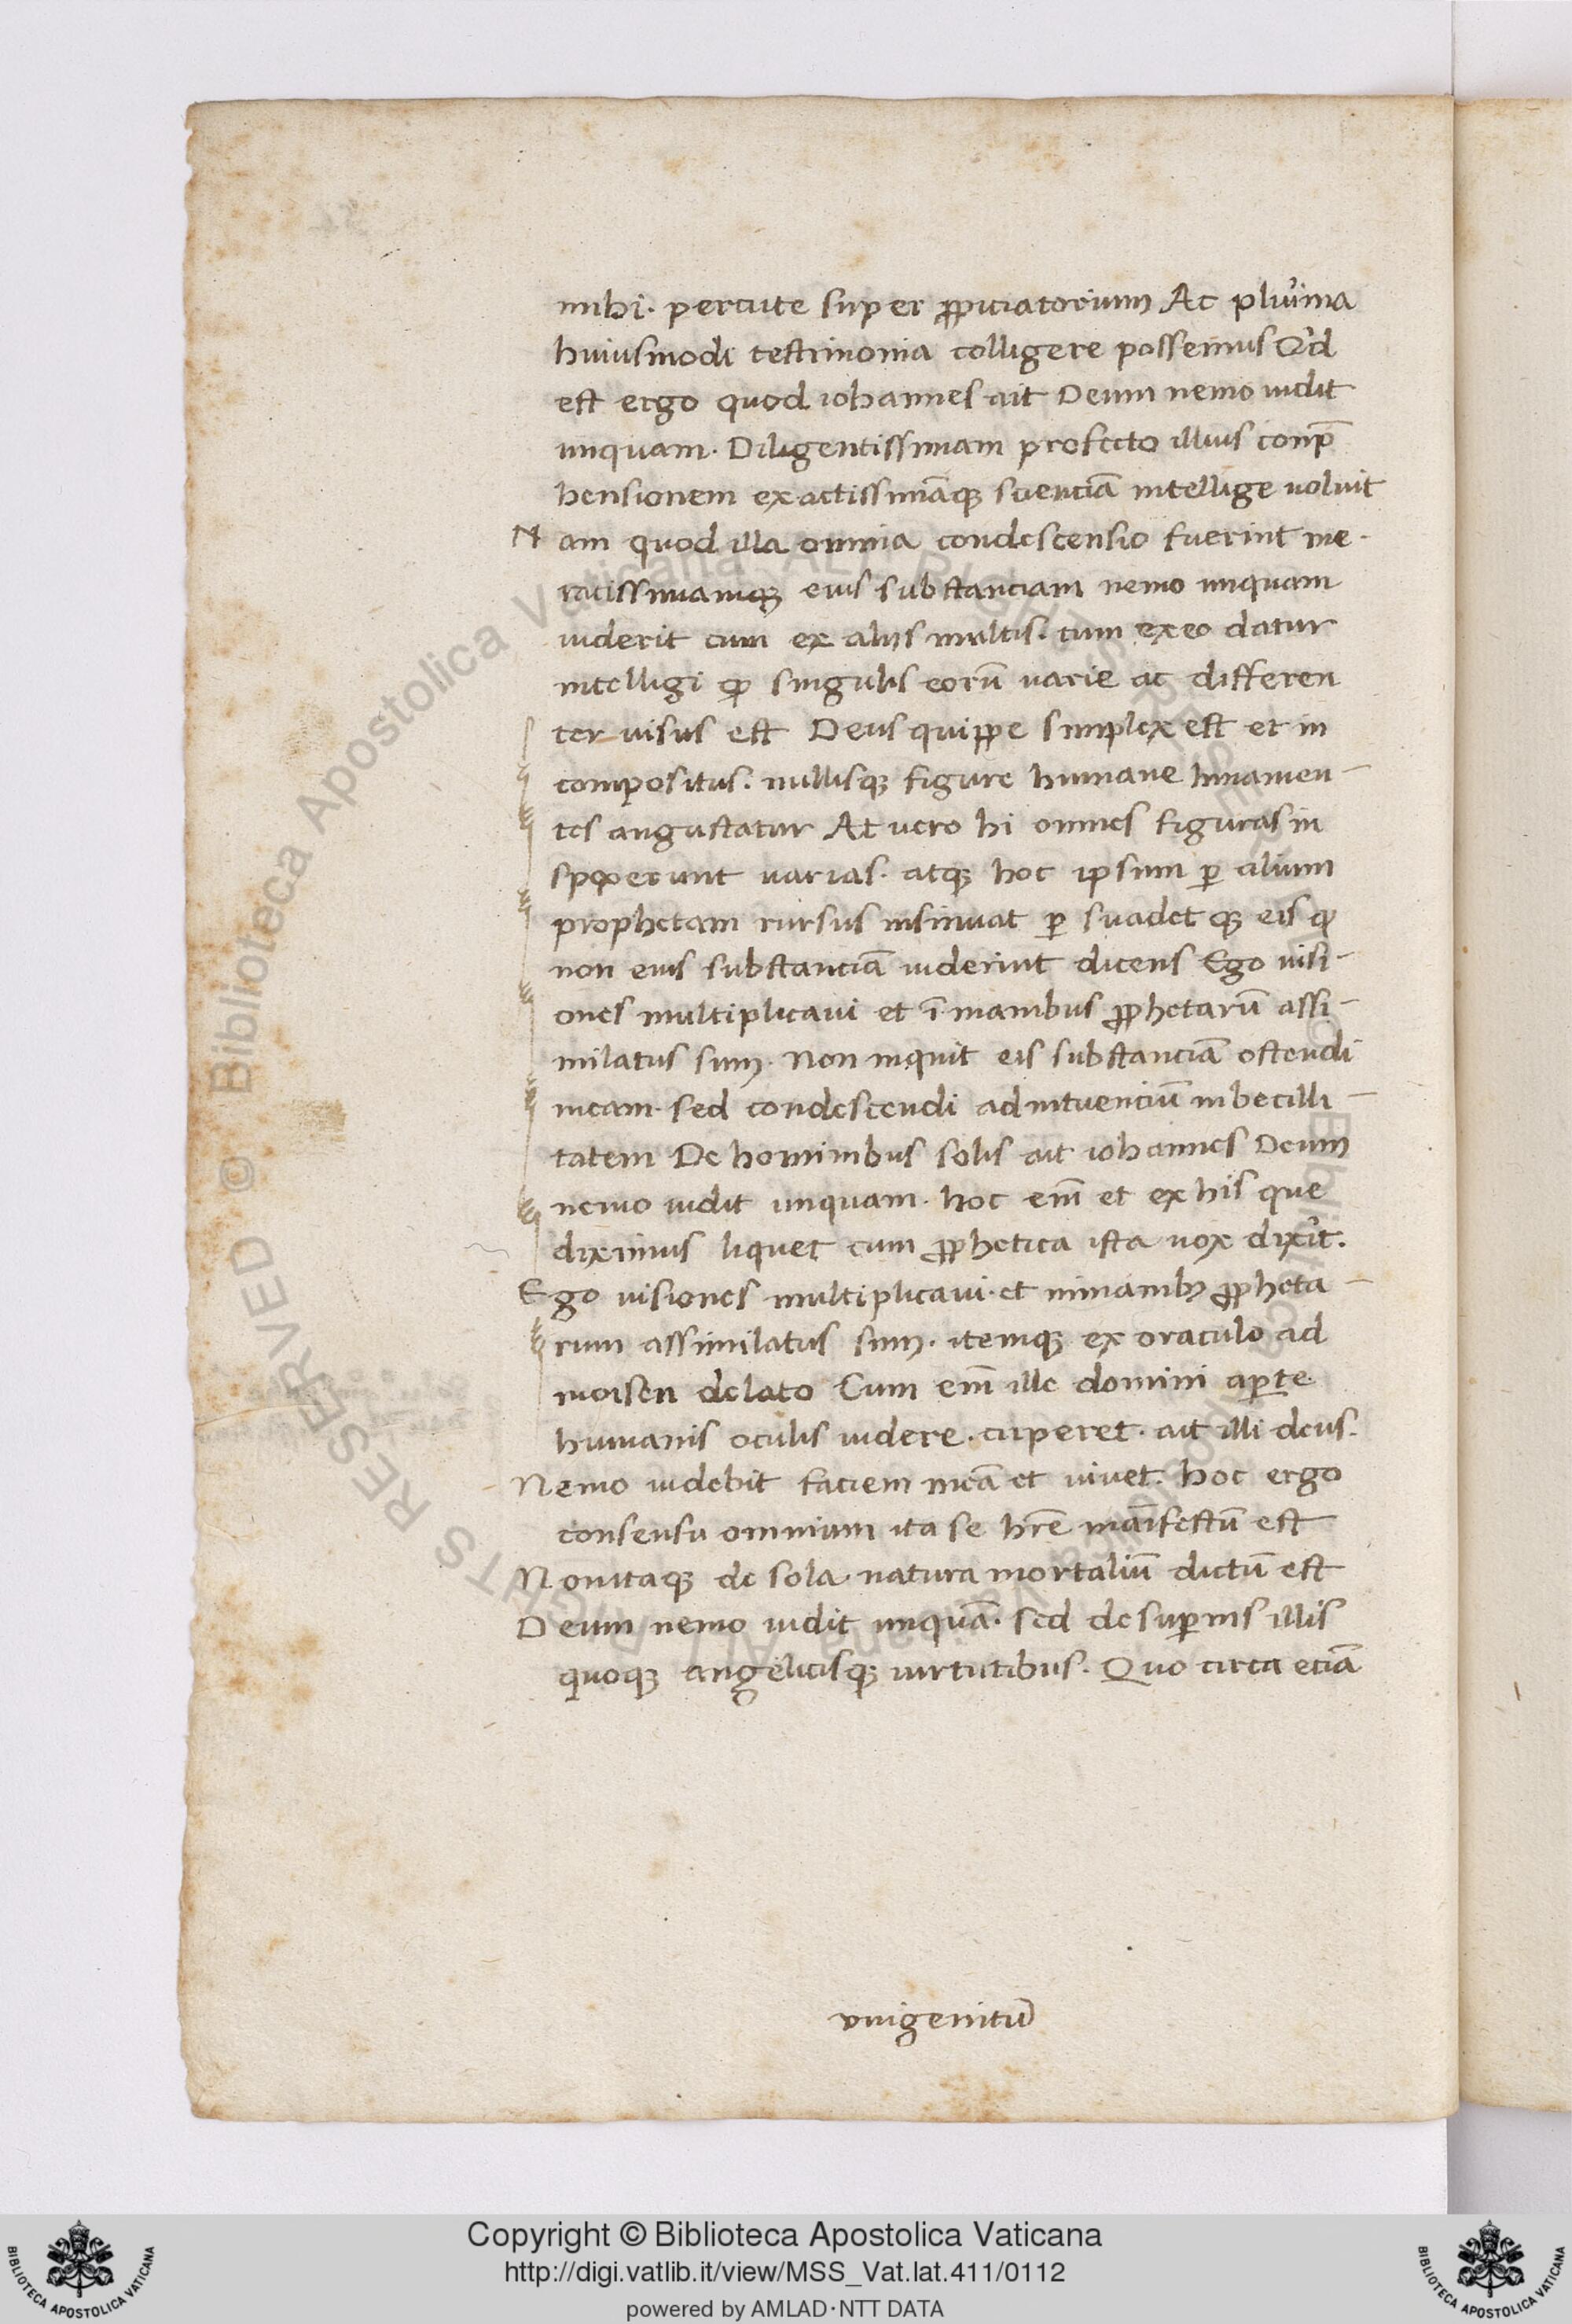 mihi. percute super ꝓpiciatorium Ac plurima
huiusmodi testimonia colligere possemus Qd
est ergo quod iohannes ait Deum nemo uidit
unquam. Diligentissimam profecto illius conp̄
hensionem exactissimāqꝫ scienciā intellige uoluit
Nam quod illa omnia condescensio fuerint me-
racissimamqꝫ eius substanciam nemo unquam
uiderit cum ex alijs multis. tum ex eo datur
intelligi ꝙ singulis eorū varie ac differen
ter uisus est Deus quippe simplex est et in
compositus. nullisqꝫ figure humane liniamen-
tes angustatur At uero hi omnes figuras in
spexerunt varias. atqꝫ hoc ipsum ꝑ alium
prophetam rursus insinuat ꝑ suadet qꝫ eis ꝙ
non eius substanciā uiderint dicens Ego uisi-
ones multiplicaui et ī manibus ꝓphetarū assi-
milatus sum. Non inquit eis substanciā ostendi
meam. sed condescendi ad intuenciū inbecilli-
tatem De hominibus solis ait iohannes Deum
nemo uidit unquam. hoc em̄ et ex his que
diximus liquet cum ꝓphetica ista uox dixit.
Ego uisiones multiplicaui. et in manibꝫ ꝓpheta-
rum assimilatus sum. itemqꝫ ex oraculo ad
moisen delato Cum em̄ ille domini aꝑte
humanis oculis uidere. cuperet. ait illi deus.
Nemo uidebit faciem meā et uiuet. hoc ergo
consensu omnium ita se hr̄e manifestū est
Non itaqꝫ de sola natura mortaliū dictū est
Deum nemo uidit unquā. sed de suꝑnis illis
quoqꝫ angelicisqꝫ uirtutibus. Quo circa eciā
vnigenitū
© Biblioteca Apostolica Vaticana ALL RIGHTS RESERVED
Copyright © Biblioteca Apostolica Vaticana
http://digi.vatlib.it/view/MSS_Vat.lat.411/0112
powered by AMLAD·NTT DATA
BIBLIOTECA APOSTOLICA VATICANA
BIBLIOTECA APOSTOLICA VATICANA